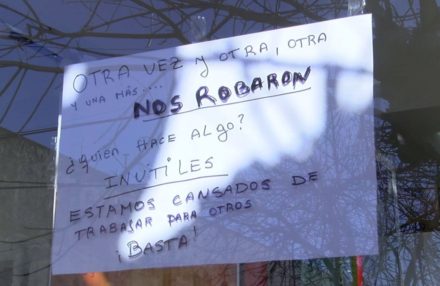 OTRA VEZ Y OTRA, OTRA
Y UNA MÁS....
NOS ROBARON
¿QUIEN HACE ALGO?
INUTILES
ESTAMOS CANSADOS DE
TRABAJAR PARA OTROS
¡BASTA!